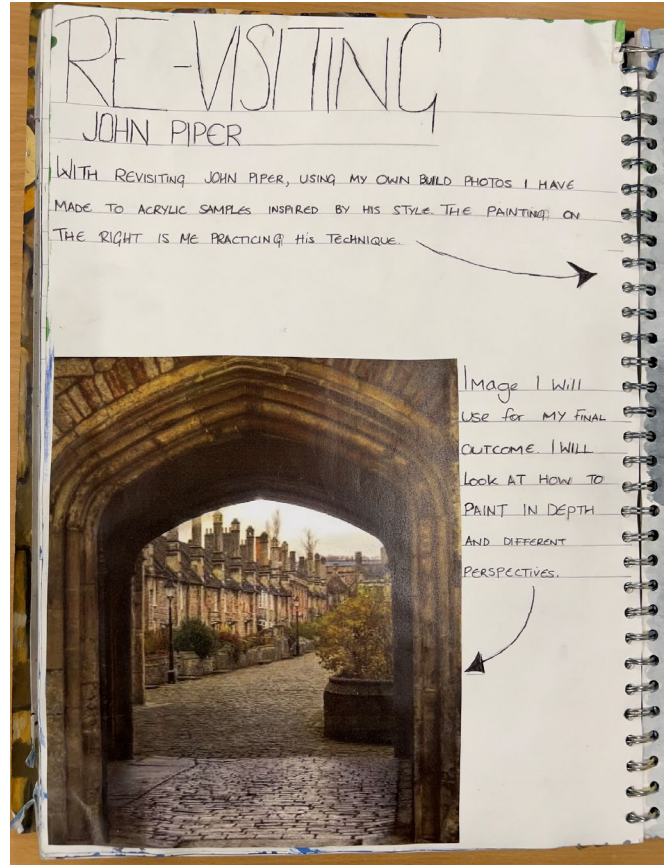 RE-VISITING
JOHN PIPER
WITH REVISITING JOHN PIPER, USING MY OWN BUILD PHOTOS I HAVE
MADE TO ACRYLIC SAMPLES INSPIRED BY HIS STYLE. THE PAINTING ON
THE RIGHT IS ME PRACTICING HIS TECHNIQUE.
IMAGE I WILL
USE FOR MY FINAL
OUTCOME. I WILL
LOOK AT HOW TO
PAINT IN DEPTH
AND DIFFERENT
PERSPECTIVES.